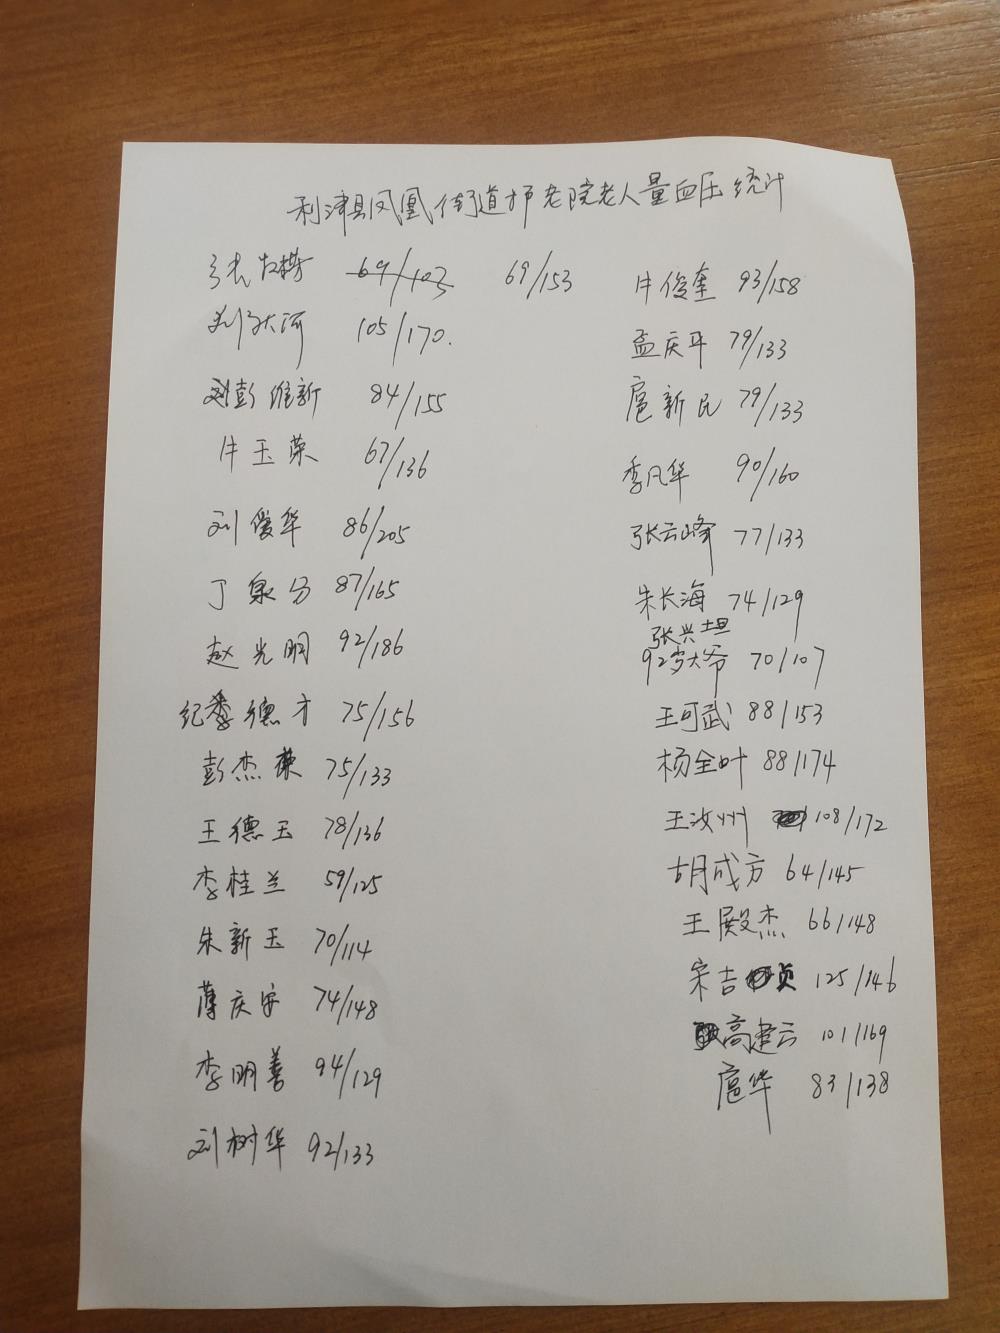 利津县凤凰街道养老院老人量血压统计
张 69/103 69/153
刘大河 105/170.
彭维新 84/155
牛玉荣 67/136
刘俊华 86/205
丁泉分 87/165
赵光明 92/186
纪德才 75/156
彭杰荣 75/133
王德玉 78/136
李桂兰 59/125
朱新玉 70/114
薄庆宇 74/148
李明善 94/129
刘树华 92/133
牛俊奎 93/158
孟庆平 79/133
扈新民 79/133
季凡华 90/160
张云峰 77/133
朱长海 74/129
张兴坦
92岁大爷 70/107
王可武 88/153
杨全叶 88/174
王汝州 108/172
胡成方 64/145
王殿杰 66/148
宋吉贞 125/146
高建云 101/169
扈华 83/138